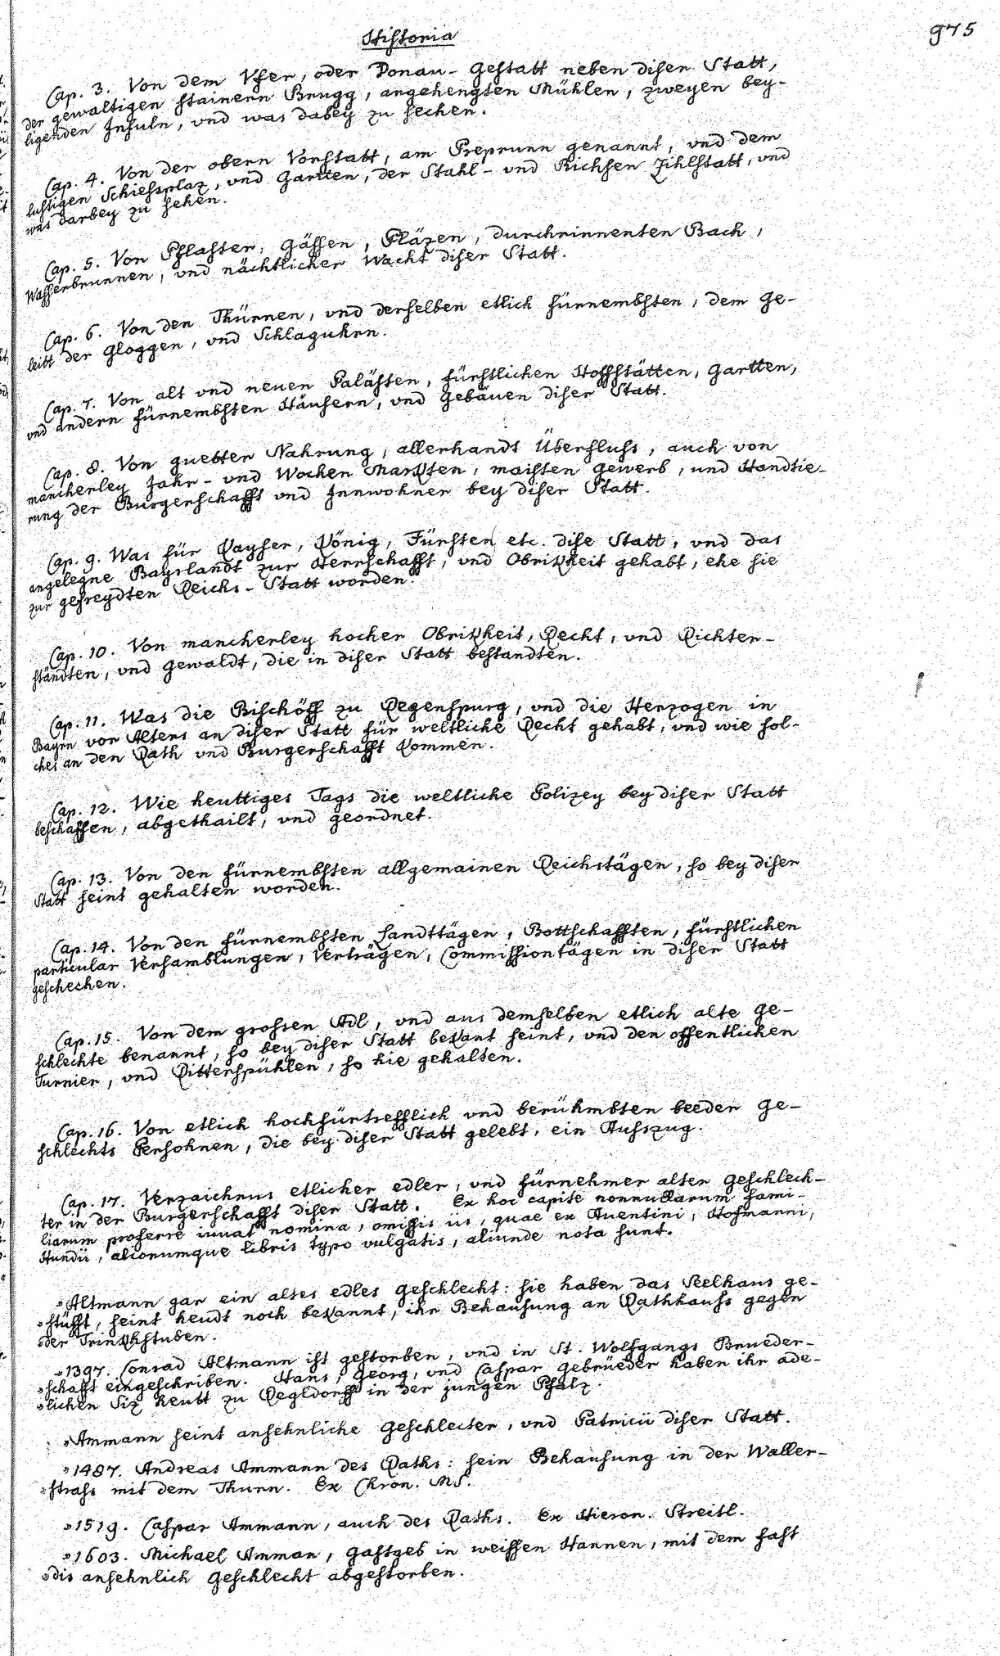 Historia
975
Cap. 3. Von dem Vfer, oder Donau- gestatt neben diser Statt,
der gewaltigen stainern Brugg, angehengten Mühlen, zweyen bey-
ligenden Insuln, vnd was dabey zu sechen.
Cap. 4. Von der obern Vorstatt, am Preprunn genannt, vnd dem
lustigen Schiessplaz, vnd Gartten, der Stahl- vnd Richsen Zihlstatt, vnd
was darbey zu sehen.
Cap. 5. Von Pflaster, Gässen, Pläzen, durchrinnenten Bach,
Wasserbrunnen, vnd nächtlicher Wacht diser Statt.
Cap. 6. Von den Thürnen, vnd derselben etlich fürnembsten, dem Ge-
leitt der Gloggen, vnd Schlaguhrn.
Cap. 7. Von alt vnd neuen Palästen, fürstlichen Hoffstätten, Gartten,
vnd andern fürnembsten Häusern, vnd Gebäuen diser Statt.
Cap. 8. Von guetter Nahrung, allerhandt Überfluss, auch von
mancherley Jahr- vnd Wochen Markten, maisten Gewerb, und Handtie-
rung der Burgerschafft vnd Innwohner bey diser Statt.
Cap. 9. Was für Kayser, König, Fürsten etc. dise Statt, vnd das
angelegne Bayrlandt zur Herrschafft, vnd Obrikheit gehabt, ehe sie
zur gefreydten Reichs-Statt worden.
Cap. 10. Von mancherley hocher Obrikheit, Recht, vnd Richter-
ständten, vnd Gewaldt, die in diser Statt bestandten.
Cap. 11. Was die Bischöff zu Regenspurg, vnd die Herzogen in
Bayrn vor Alters an diser Statt für weltliche Recht gehabt, vnd wie sol-
ches an den Rath vnd Burgerschafft kommen.
Cap. 12. Wie heuttiges Tags die weltliche Polizey bey diser Statt
beschaffen, abgethailt, vnd geordnet.
Cap. 13. Von den fürnembsten allgemainen Reichstägen, so bey diser
Statt seint gehalten worden.
Cap. 14. Von den fürnembsten Landttägen, Bottschafften, fürstlichen
particular Versamblungen, Verträgen, Commissiontägen in diser Statt
geschechen.
Cap. 15. Von dem grossen Adl, vnd aus demselben etlich alte Ge-
schlechte benannt, so bey diser Statt bekant seint, vnd den offentlichen
Turnier, vnd Ritterspühlen, so hie gehalten.
Cap. 16. Von etlich hochfürtrefflich vnd berühmbten beeder Ge-
schlechts Persohnen, die bey diser Statt gelebt, ein Auszug.
Cap. 17. Verzaichnus etlicher edler, vnd fürnehmer alter Geschlech-
ter in der Burgerschafft diser Statt. Ex hoc capite nonnullarum fami-
liarum proferre iuvat nomina, omissis iis, quae ex Auentini, Hofmanni,
Hundii, aliorumque libris typo vulgatis, aliunde nota sunt.
»Altmann gar ein altes edles Geschlecht: sie haben das Seelhaus ge-
»stüfft, seint heudt noch bekannt, ihr Behausung an Rathhauss gegen
»der Trinkhstuben.
»1397. Conrad Altmann ist gestorben, vnd in St. Wolfgangs Brueder-
»schafft eingeschriben. Hans, Georg, vnd Caspar Gebrüeder haben ihr ade-
»lichen Siz heutt zu Regldorff in der jungen Pfalz.
»Ammann seint ansehnliche Geschlecter, vnd Patricii diser Statt.
»1487. Andreas Ammann des Raths: sein Behausung in der Waller-
»strass mit dem Thurn. Ex Chron. MS.
»1519. Caspar Ammann, auch des Raths. Ex Hieron. Streitl.
»1603. Michael Amman, Gastgeb in weissen Hannen, mit dem fast
»dis ansehnlich Geschlecht abgestorben.